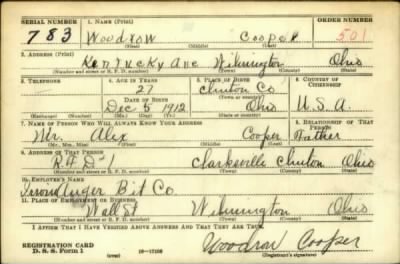 SERIAL NUMBER 1. NAME (Print) ORDER NUMBER
783 Woodrow Cooper 501
(First) (Middle) (Last)
2. ADDRESS (Print)
Kentucky Ave Wilmington Ohio
(Number and street or R. F. D. number) (Town) (County) (State)
3. TELEPHONE 4. AGE IN YEARS 5. PLACE OF BIRTH 6. COUNTRY OF CITIZENSHIP
27 Clinton Co
DATE OF BIRTH (Town or county)
Dec 5 1912 Ohio U.S.A
(Exchange) (Number) (Mo.) (Day) (Yr.) (State or country)
7. NAME OF PERSON WHO WILL ALWAYS KNOW YOUR ADDRESS 8. RELATIONSHIP OF THAT PERSON
Mr. Alex Cooper Father
(Mr., Mrs., Miss) (First) (Middle) (Last)
9. ADDRESS OF THAT PERSON
RFD-1 Clarksville Clinton Ohio
(Number and street or R. F. D. number) (Town) (County) (State)
10. EMPLOYER'S NAME
Auger Bit Co
11. PLACE OF EMPLOYMENT OR BUSINESS
Wall St Wilmington Ohio
(Number and street or R. F. D. number) (Town) (County) (State)
I AFFIRM THAT I HAVE VERIFIED ABOVE ANSWERS AND THAT THEY ARE TRUE.
REGISTRATION CARD
D. S. S. Form 1 16—17105 Woodrow Cooper
(Registrant's signature)